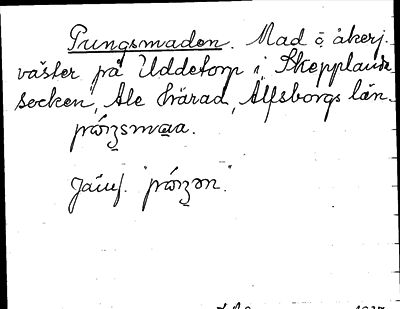 Pungsmaden. Mad o. åkerj.
väster på Uddetorp i Skepplanda
socken, Ale härad, Älfsborgs län.
Jämf.